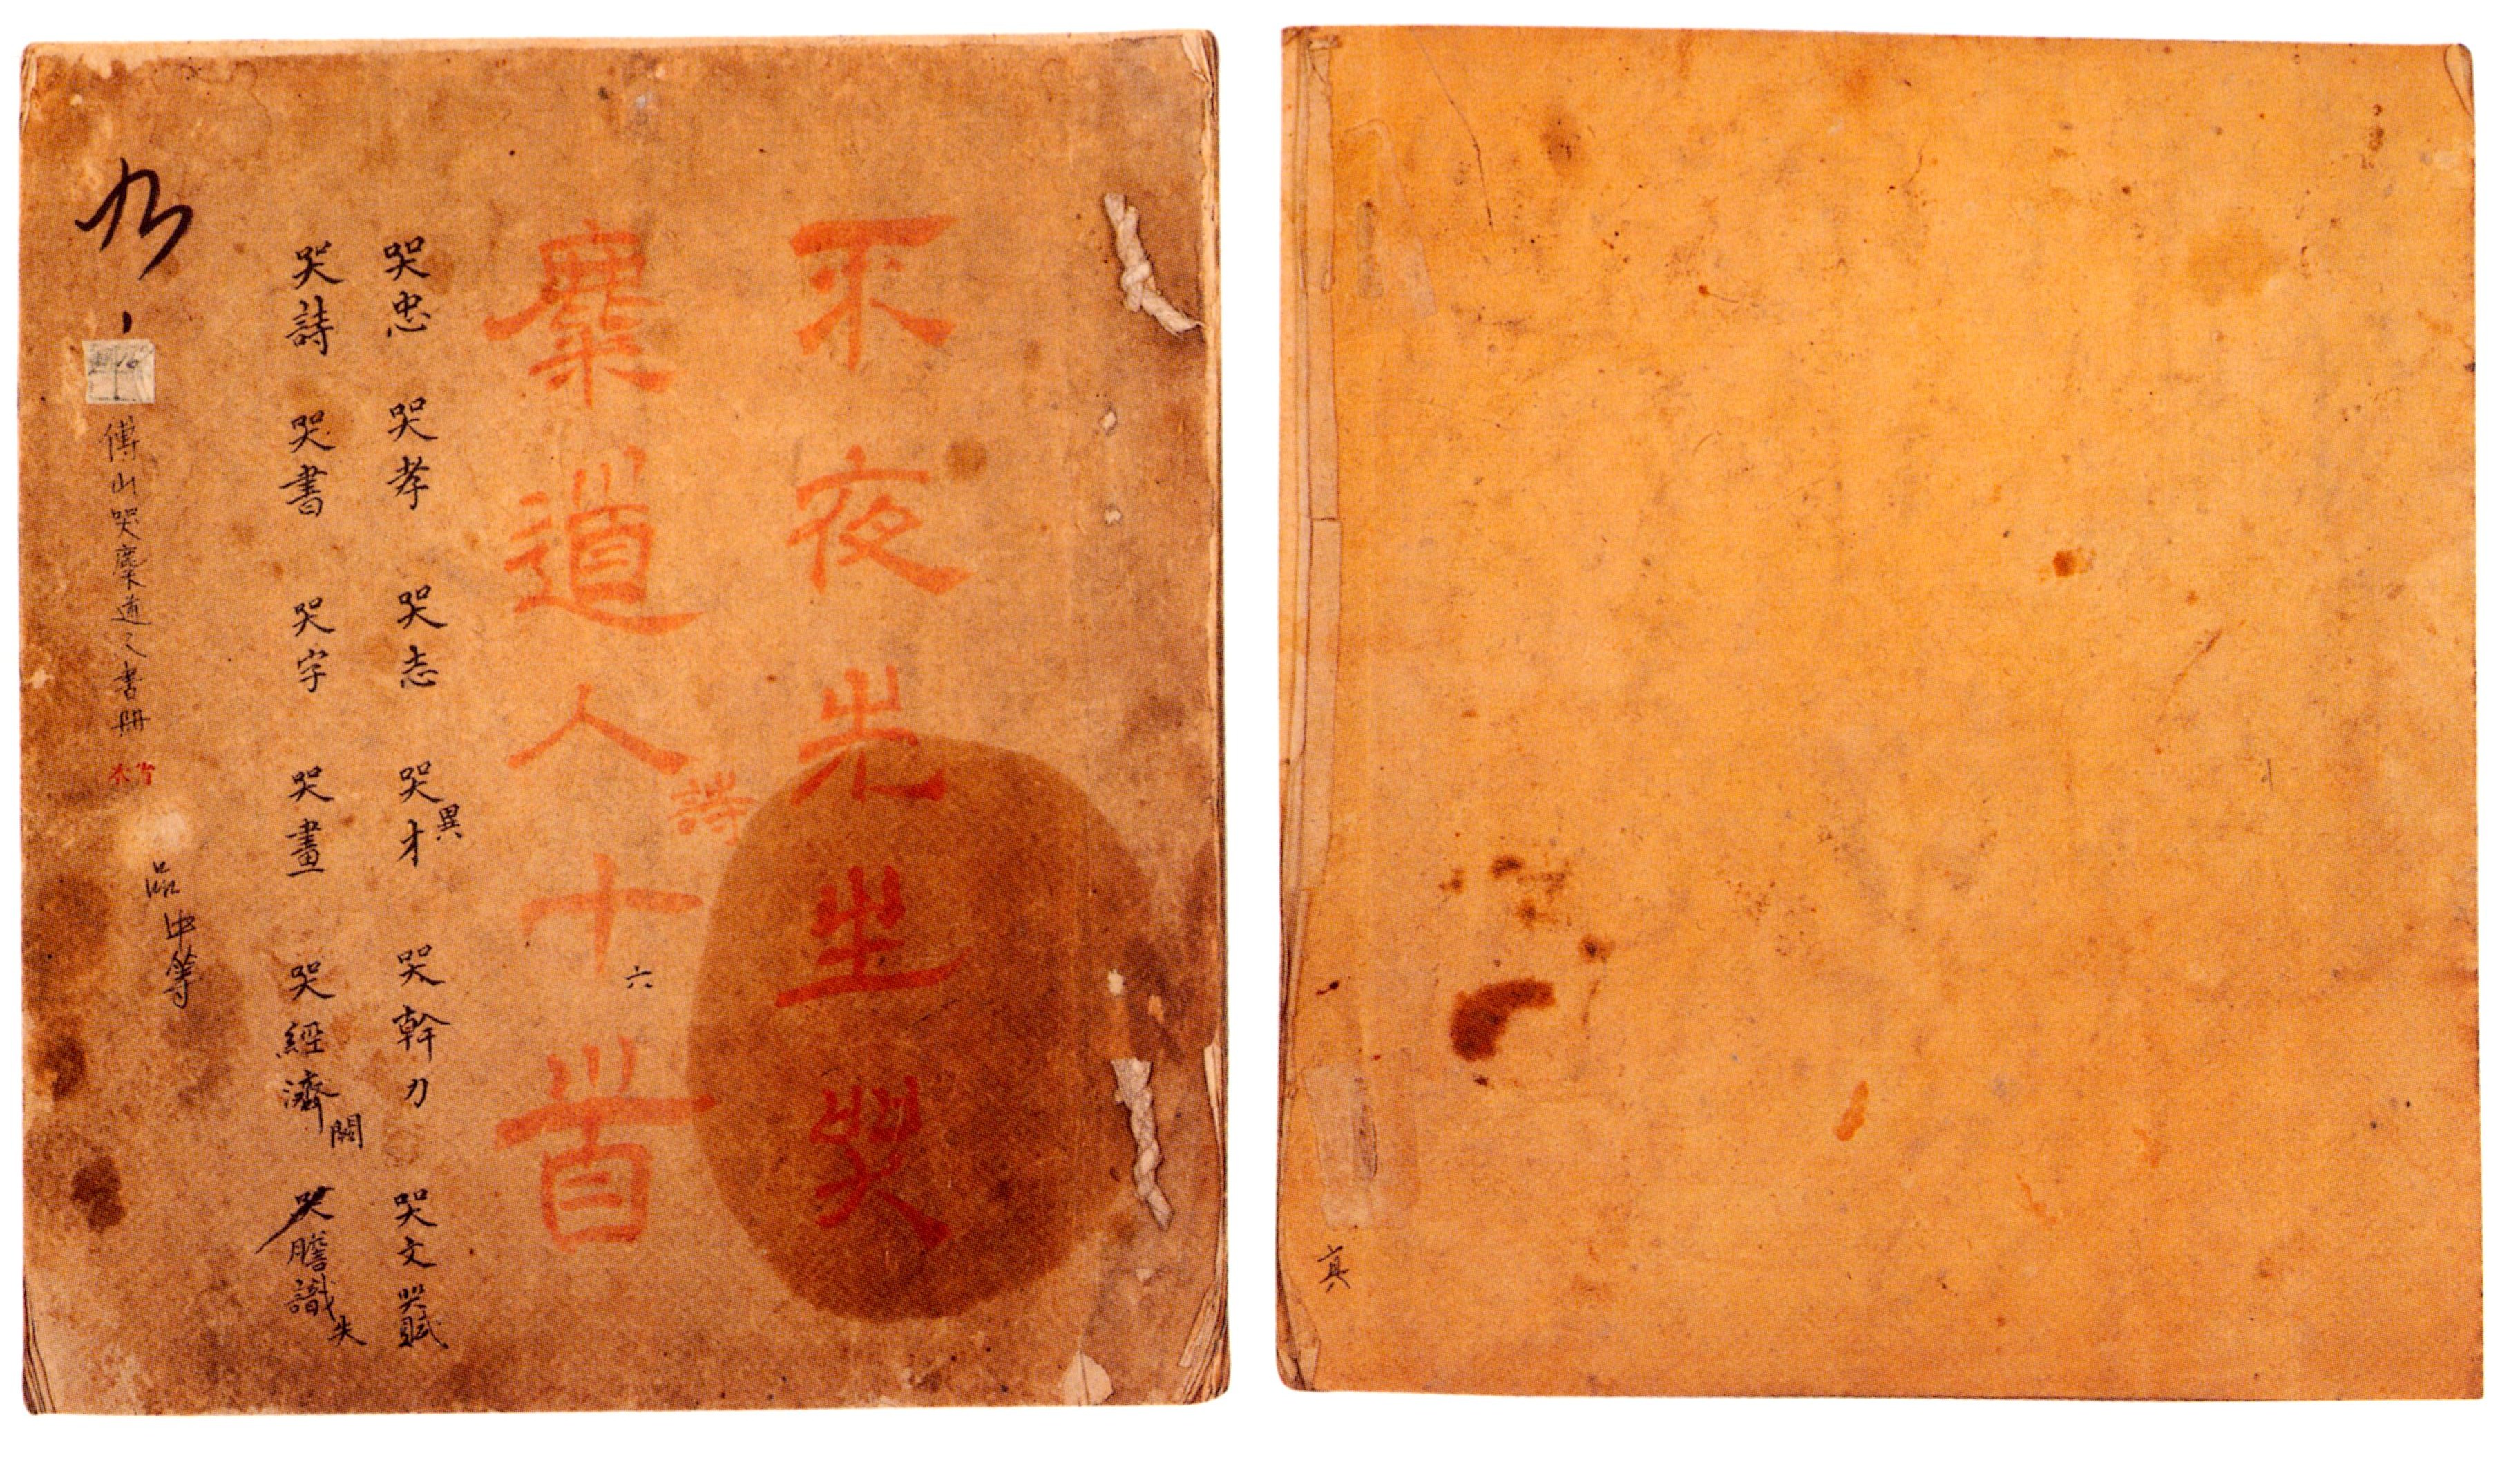 不夜光坐哭
麋道人十六首
詩
哭忠 哭孝 哭志 哭異才 哭幹力 哭文哭賦
哭詩 哭書 哭字 哭畫 哭經濟闕 哭膽識失
傅山哭麋道人書冊
品中等
真